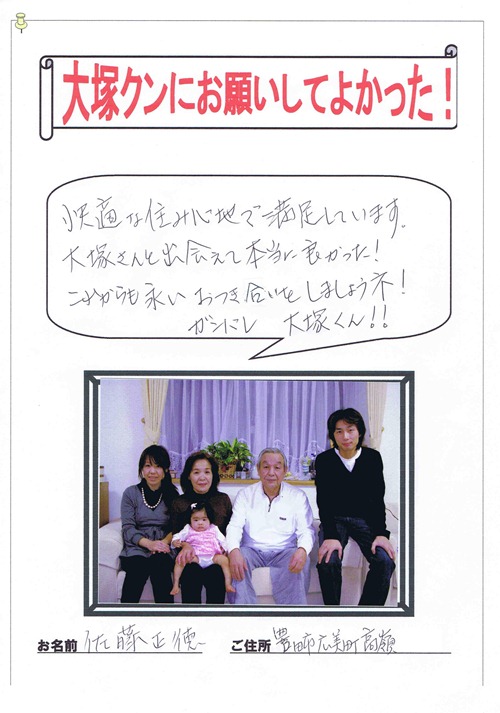 大塚クンにお願いしてよかった!
快適な住み心地で満足しています。
大塚さんと出会えて本当に良かった!
これからも永いおつき合いをしましょうネ!
ガンバレ 大塚くん!!
お名前 佐藤正徳 ご住所 豊田市広美町高嶺